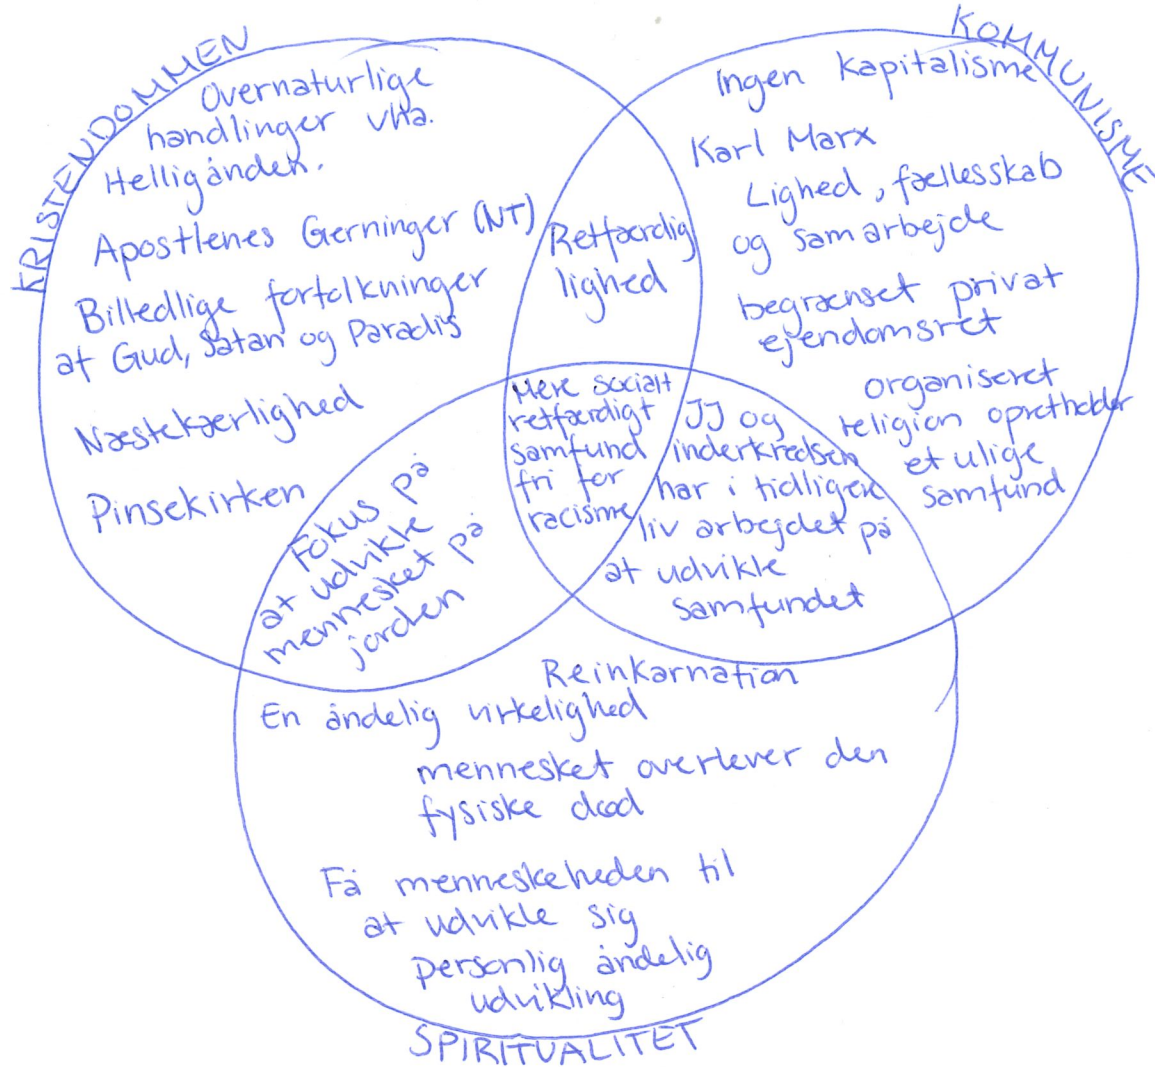 KRISTENDOMMEN
Overnaturlige
handlinger vha.
Helligånden.
Apostlenes Gerninger (NT)
Billedlige fortolkninger
af Gud, Satan og Paradis
Næstekærlighed
Pinsekirken
KOMMUNISME
Ingen kapitalisme
Karl Marx
Lighed, fællesskab
og samarbejde
begrænset privat
ejendomsret
organiseret
religion opretholder
et ulige
samfund
Retfærdig
lighed
Mere socialt
retfærdigt
samfund
fri for
racisme
JJ og
inderkredsen
har i tidligere
liv arbejdet på
at udvikle
samfundet
Fokus på
at udvikle
mennesket på
jorden
Reinkarnation
En åndelig virkelighed
mennesket overlever den
fysiske død
Få menneskeheden til
at udvikle sig
personlig åndelig
udvikling
SPIRITUALITET